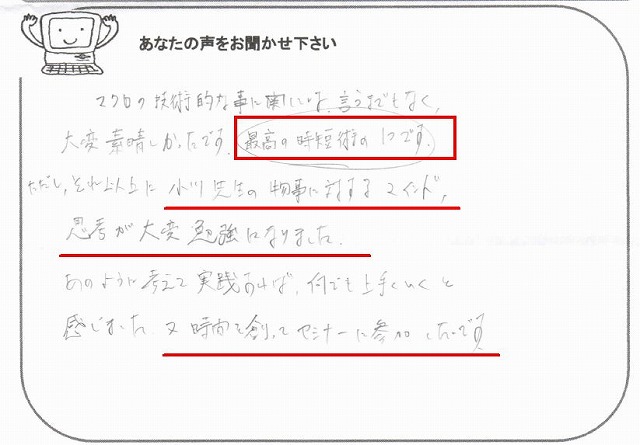 あなたの声をお聞かせ下さい
マクロの技術的な事に関しては、言うまでもなく、
大変素晴しかったです。最高の時短術の1つです。
ただし、それ以上に小川先生の物事に対するマインド、
思考が大変勉強になりました。
あのように考えて実践すれば、何でも上手くいくと
感じました。又時間を創ってセミナーに参加したいです